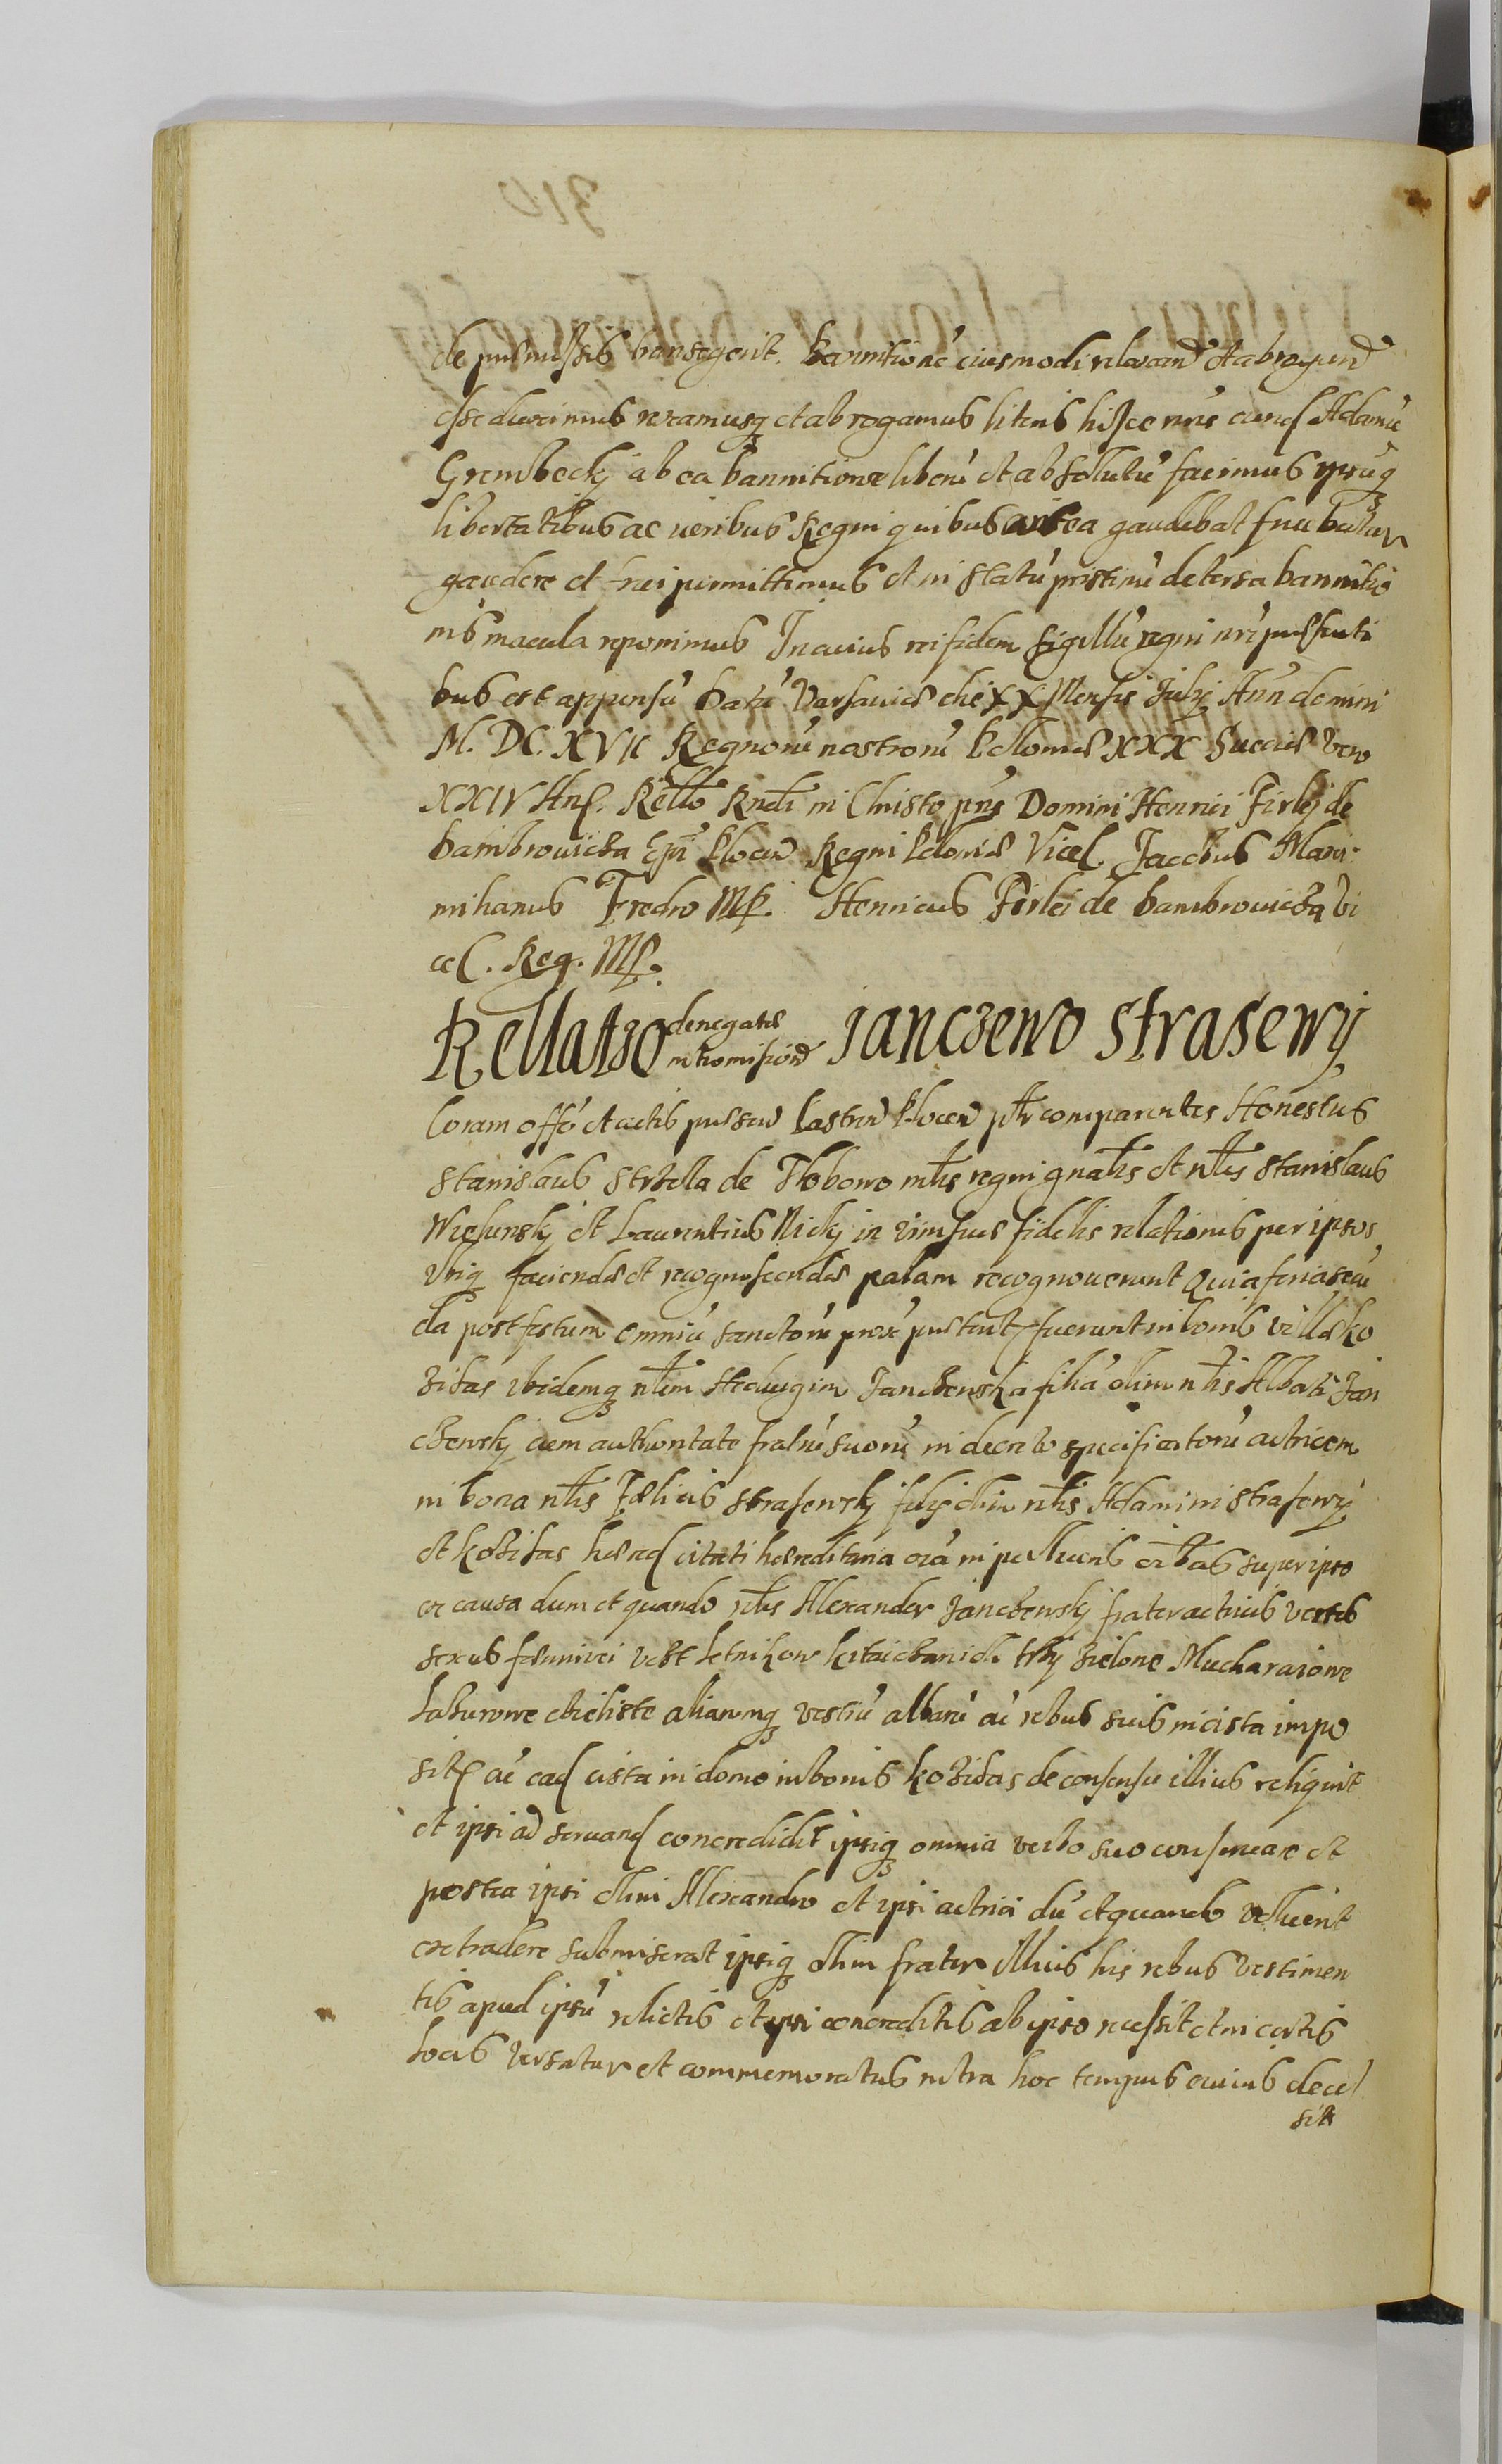 de praemissis transegerit. Bannitione eiusmodi relaxand et abrogand
esse duximus rexamusq et abrogamus literis hisce nris eund Adamu
Grembecky ab ea bannitione liberu et absolutu facimus ipsuq
libertatibus ac iuribus Regni quibus antea gaudebat fruebatur
gaudere et frui permittimus et in statu pristinu detersa bannitio
nis macula reponimus In cuius rei fidem sigillu regni nri praesenti
bus est appensu Datu Varsaviae die XX Mensis July Ann domini
M. DC. XVII Regnoru nostroru Poloniae XXX Sueciae vero
XXIV Ann. Rello Rndi in Christo pris Domini Henrici Firlej de
Dambrowicza Epi Plocen Regni Poloniae Vicel. Jacobus Maxi-
milianus Fredro MP. Henricus Firlei de Dambrowicza Vi
cel. Reg. MP.
Rellatio denegatae intromission Janczewo Strasewy
Coram offo et actis praesen Castren Plocen pltr comparentes Honestus
Stanislaus Strzela de Tlobowo mlis regni gnalis et nlis Stanislaus
Wielunsky et Laurentius Nicky in vim suae fidelis relationis per ipsos
Vrig faciendae et recognoscendae palam recognoverunt Quia feria secu
da post festum Omniu Sanctoru prox praeterit fuerunt in bonis villae Ko
zibas ibidemq nlem Hedvigim Janczewska filia olim nlis Alberti Jan
czewsky cum authoritate fratru suoru in decreto specificatoru actricem
in bona nlis Felicis Strasewsky fily olim nlis Adami in Strasewy
et Kozibas haered citati haereditaria
ex causa dum et quando nlis Alexander Janczewsky frater actricis vestes
sexus faeminei Letnikow kitaiczanich trzy zielone Mucharaiowe
Lazurowe aliarumq vestiu albaru ac rebus suis in cista impo
sit ac ead cista in domo in bonis Kozibas de consensu illius reliquit
et ipsi ad servand concredidit ipsiq omnia verbo suo conservare et
postea ipsi olim Alexandro et ipsi actrici du et quando voluerit
extradere submiserat ipsiq olim frater illius his rebus vestimen
tis apud ipsu relictis et ipsi concreditis ab ipso recessit et in certis
locis versatur et commemoratus intra hoc tempus eiuius deces
sit